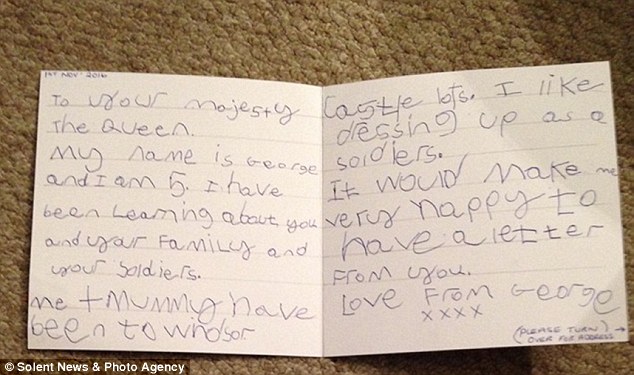 1ST NOV. 2016
To your majesty
The Queen.
My name is George
and I am 5. I have
been Learning about you
and your Family and
your soldiers.
me + mummy have
been to windsor
Castle lots. I like
dressing up as a
soldiers.
It would make me
very happy to
have a letter
From you.
Love From George
xxxx
(PLEASE TURN) →
OVER FOR ADDRESS
© Solent News & Photo Agency